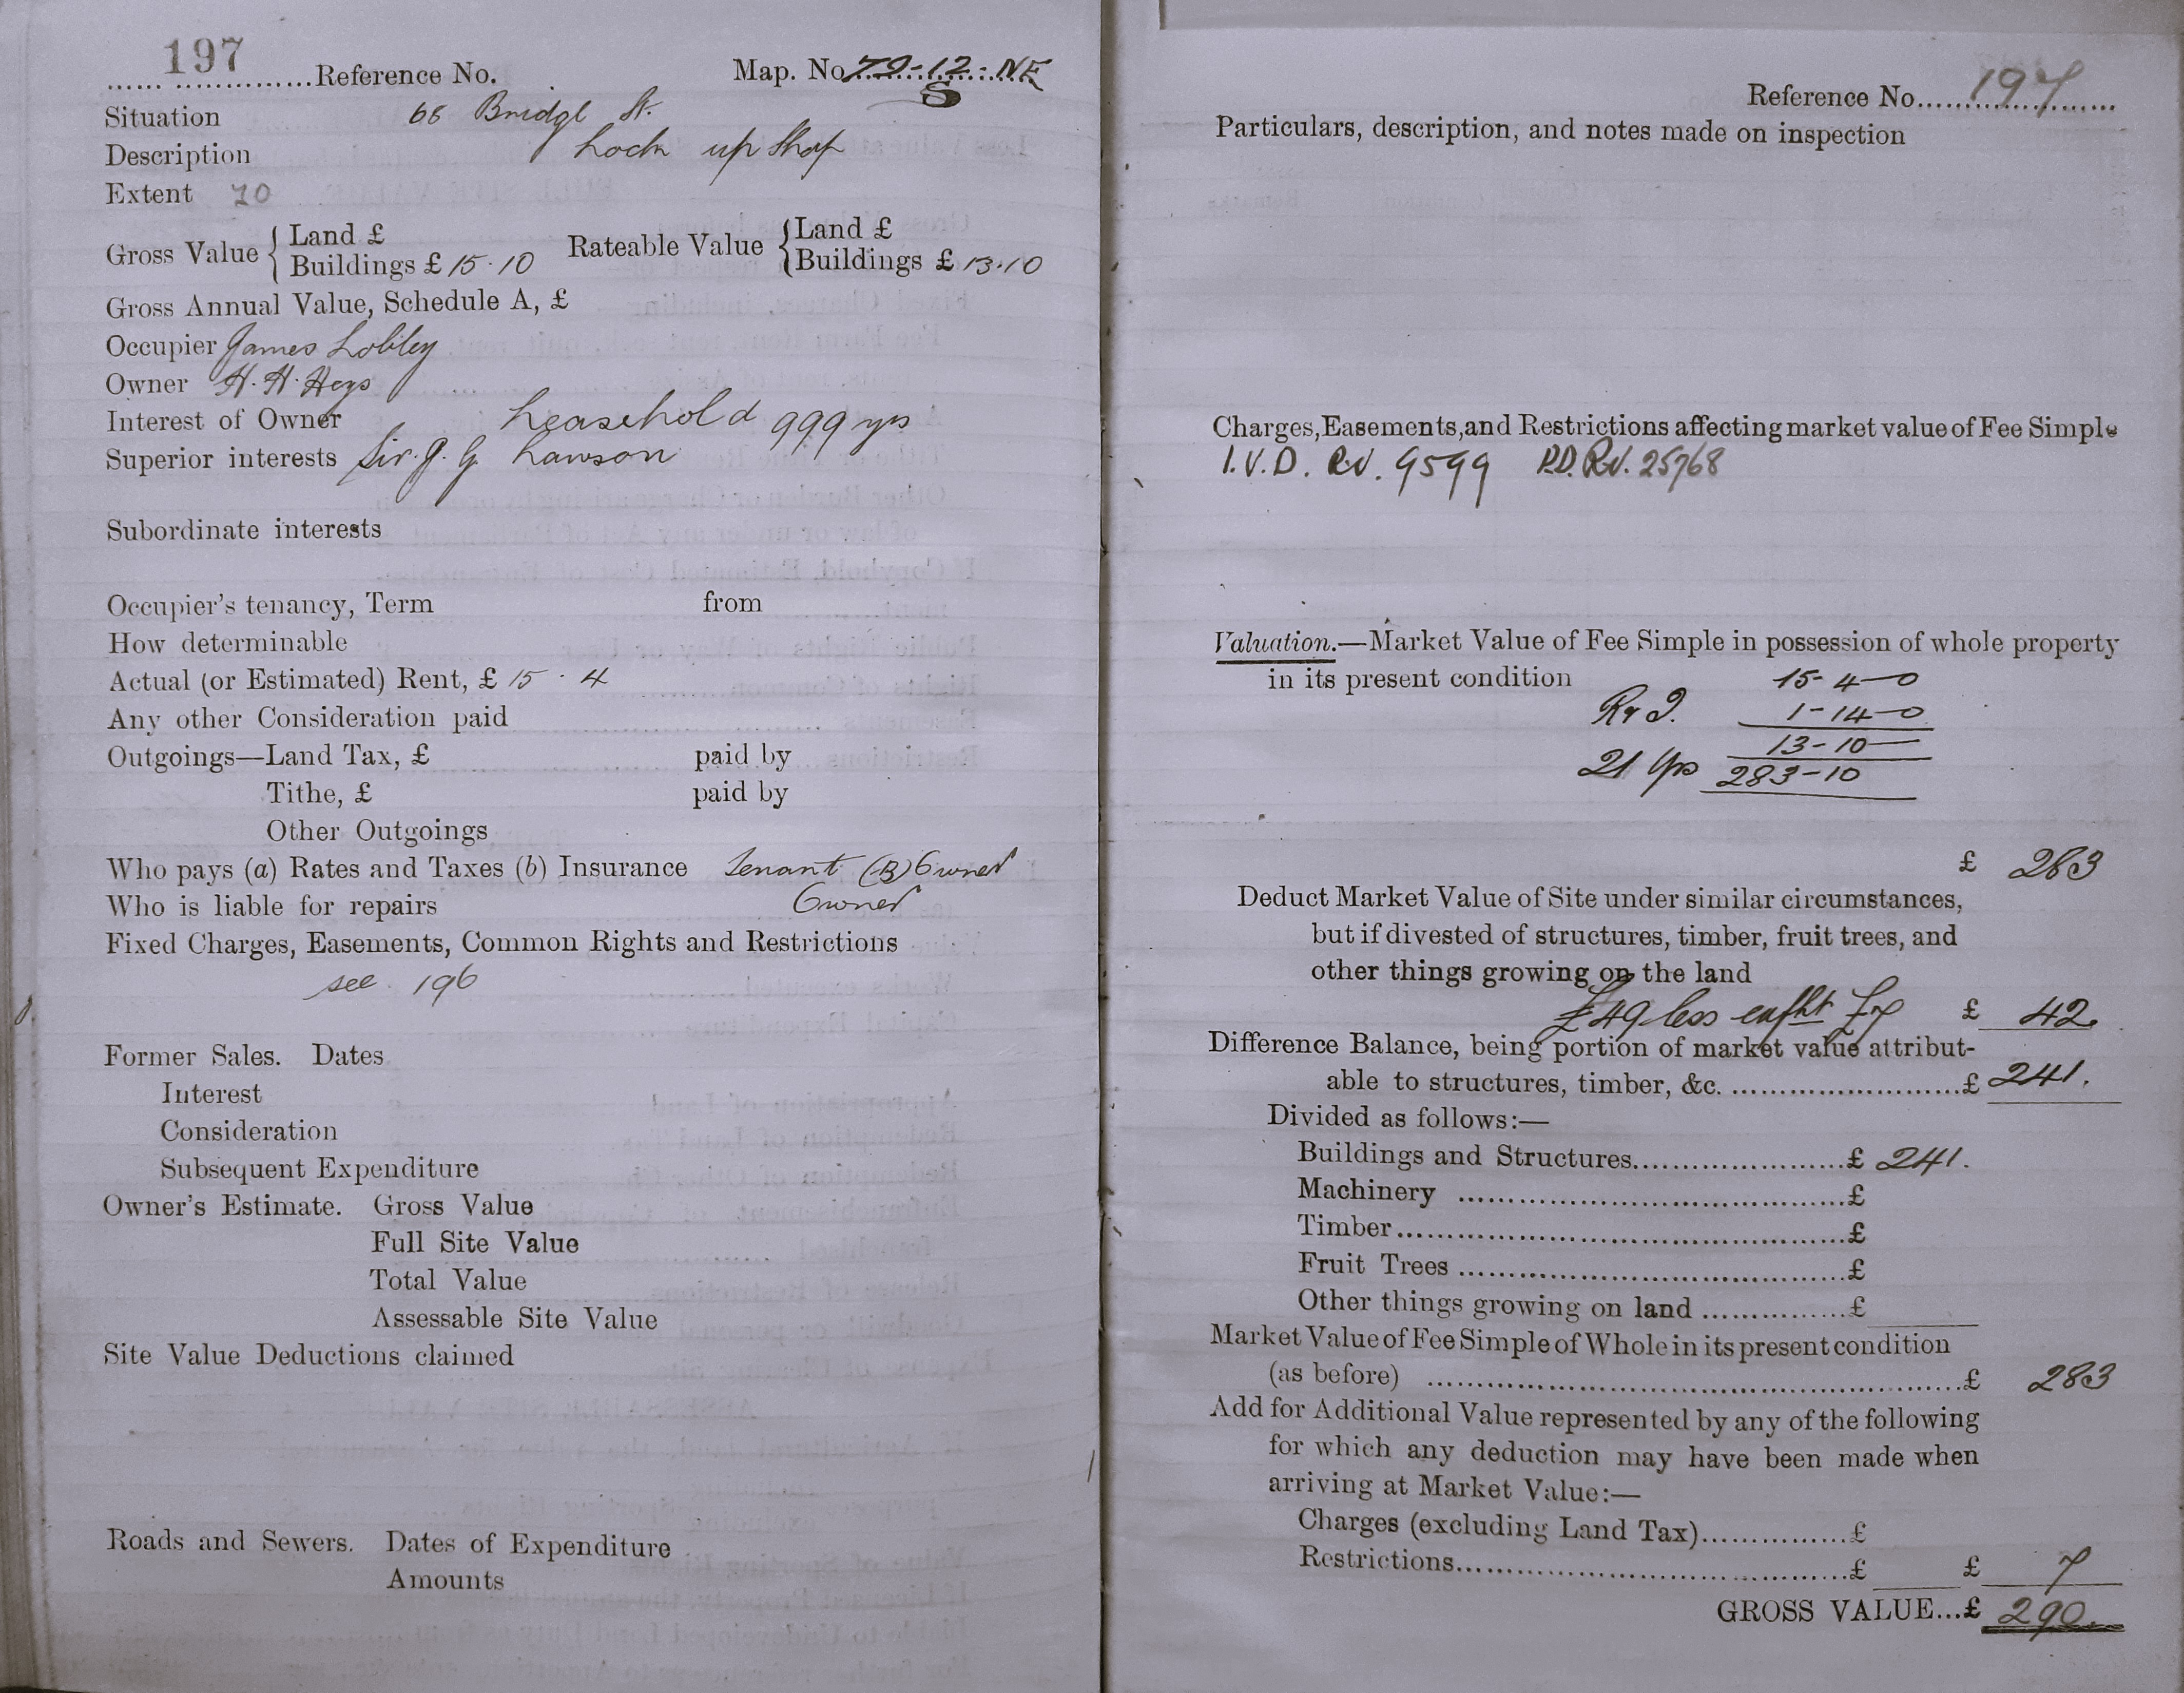 197
Reference No. Map. No 72-12-NE
S
Situation 68 Bridge St.
Description Lock up Shop
Extent 70
Gross Value { Land £
Buildings £ 15.10
Rateable Value { Land £
Buildings £ 13.10
Gross Annual Value, Schedule A, £
Occupier James Lobley
Owner H. H. Heys
Interest of Owner Leasehold 999 yrs
Superior interests Sir. J. G. Lawson
Subordinate interests
Occupier's tenancy, Term from
How determinable
Actual (or Estimated) Rent, £ 15 . 4
Any other Consideration paid
Outgoings—Land Tax, £ paid by
Tithe, £ paid by
Other Outgoings
Who pays (a) Rates and Taxes (b) Insurance Tenant (B) Owner
Who is liable for repairs Owner
Fixed Charges, Easements, Common Rights and Restrictions
see 196
Former Sales. Dates
Interest
Consideration
Subsequent Expenditure
Owner's Estimate. Gross Value
Full Site Value
Total Value
Assessable Site Value
Site Value Deductions claimed
Roads and Sewers. Dates of Expenditure
Amounts
Reference No. 197
Particulars, description, and notes made on inspection
Charges, Easements, and Restrictions affecting market value of Fee Simple
I.V.D. RV. 9599 P.D. RV. 25768
Valuation.—Market Value of Fee Simple in possession of whole property
in its present condition 15-4-0
R & I. 1-14-0
13-10-
21 Yps 283-10
£ 283
Deduct Market Value of Site under similar circumstances,
but if divested of structures, timber, fruit trees, and
other things growing on the land
£49 less £7 £ 42.
Difference Balance, being portion of market value attribut-
able to structures, timber, &c. £ 241.
Divided as follows:—
Buildings and Structures £ 241.
Machinery £
Timber £
Fruit Trees £
Other things growing on land £
Market Value of Fee Simple of Whole in its present condition
(as before) £ 283
Add for Additional Value represented by any of the following
for which any deduction may have been made when
arriving at Market Value:—
Charges (excluding Land Tax) £
Restrictions £ £ 7
GROSS VALUE...£ 290